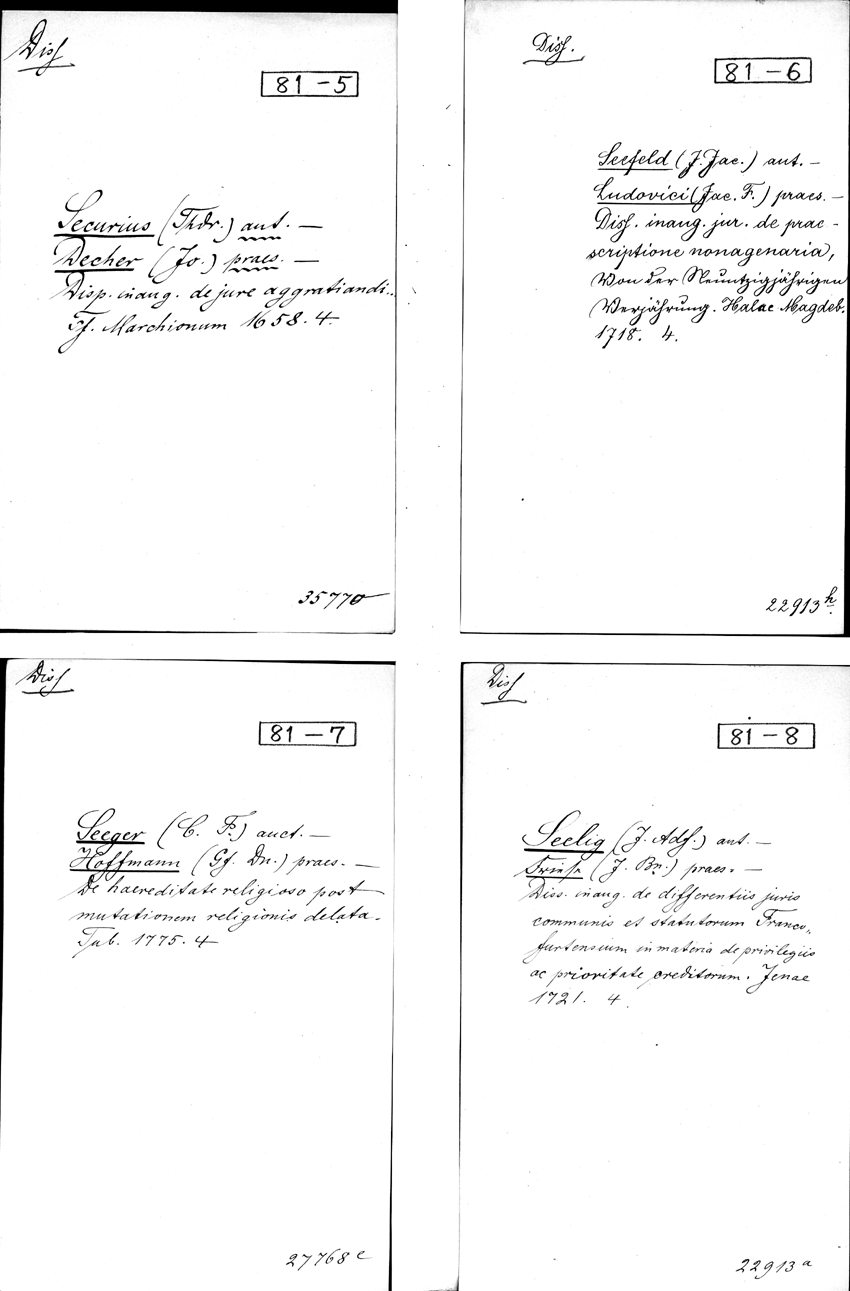 Diss
81-5
Securius (Thdr.) aut. —
Decher (Jo.) praes. —
Disp. inaug. de jure aggratiandi..
Ff. Marchionum 1658. 4.
35770
Diss.
81-6
Seefeld (J. Jac.) aut. —
Ludovici (Jac. F.) praes. —
Diss. inaug. jur. de prae-
scriptione nonagenaria,
Von der Neuntzigjährigen
Verjährung. Halae Magdeb.
1718. 4.
22913 h.
Diss
81-7
Seeger (C. F.) auct. —
Hoffmann (Gf. Dn.) praes. —
De haereditate religioso post
mutationem religionis delata.
Tub. 1775. 4
27768 c
Diss
81-8
Seelig (J. Adf.) aut. —
(J. Bn.) praes. —
Diss. inaug. de differentiis juris
communis et statutorum Franco-
furtensium in materia de privilegiis
ac prioritate creditorum. Jenae
1721. 4.
22913 a